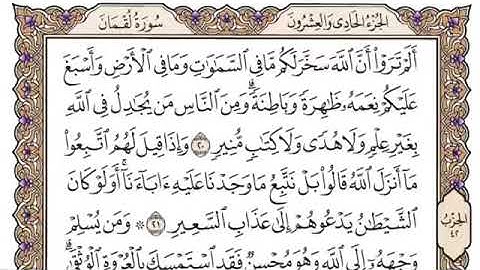 الجزء الحادي والعشرون
سورة لقمان
أَلَمْ تَرَوْا۟ أَنَّ ٱللَّهَ سَخَّرَ لَكُم مَّا فِى ٱلسَّمَٰوَٰتِ وَمَا فِى ٱلْأَرْضِ وَأَسْبَغَ
عَلَيْكُمْ نِعَمَهُۥ ظَٰهِرَةً وَبَاطِنَةً ۗ وَمِنَ ٱلنَّاسِ مَن يُجَٰدِلُ فِى ٱللَّهِ
بِغَيْرِ عِلْمٍ وَلَا هُدًى وَلَا كِتَٰبٍ مُّنِيرٍ ٢٠ وَإِذَا قِيلَ لَهُمُ ٱتَّبِعُوا۟
مَآ أَنزَلَ ٱللَّهُ قَالُوا۟ بَلْ نَتَّبِعُ مَا وَجَدْنَا عَلَيْهِ ءَابَآءَنَآ ۚ أَوَلَوْ كَانَ
ٱلشَّيْطَٰنُ يَدْعُوهُمْ إِلَىٰ عَذَابِ ٱلسَّعِيرِ ٢١ ۞ وَمَن يُسْلِمْ
وَجْهَهُۥٓ إِلَى ٱللَّهِ وَهُوَ مُحْسِنٌ فَقَدِ ٱسْتَمْسَكَ بِٱلْعُرْوَةِ ٱلْوُثْقَىٰ ۗ
الحزب
٤٢